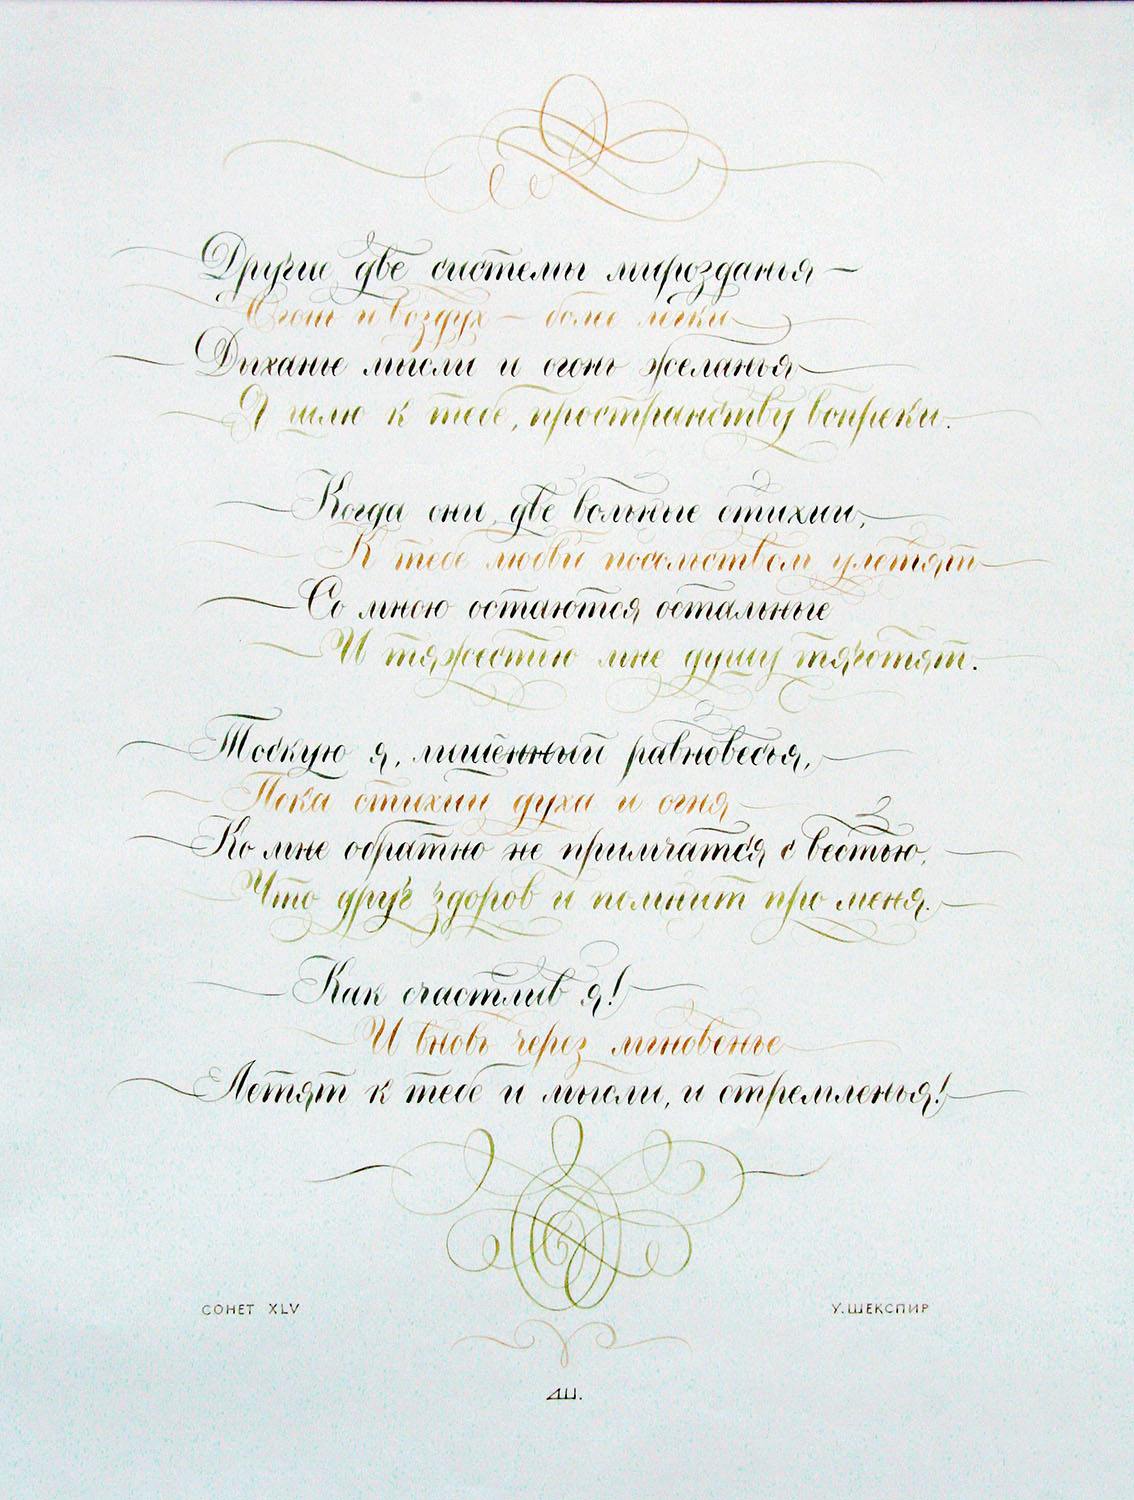 Другие две системы мирозданья —
Огонь и воздух — более легки
Дыханье мысли и огонь желанья
Я шлю к тебе, пространству вопреки.
Когда они, две вольные стихии,
К тебе любви посольством улетят
Со мною остаются остальные
И тяжестью мне душу тяготят.
Тоскую я, лишённый равновесья,
Пока стихии духа и огня
Ко мне обратно не примчатся с вестью,
Что друг здоров и помнит про меня.
Как счастлив я!
И вновь через мгновенье
Летят к тебе и мысли, и стремленья!
СОНЕТ XLV
У. ШЕКСПИР
ДЩ.